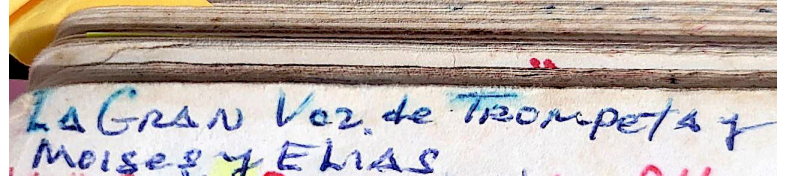 LA GRAN Voz de TROMPETA y
MOISES y ELIAS